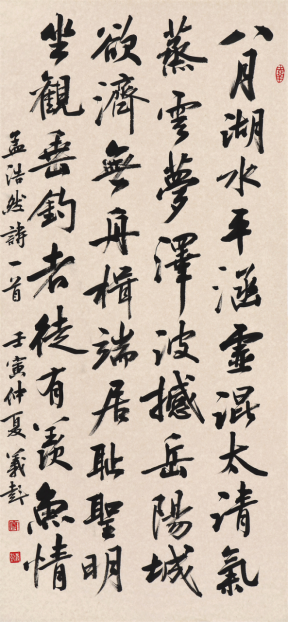 八月湖水平涵虛混太清氣
蒸雲夢澤波撼岳陽城
欲濟無舟楫端居恥聖明
坐觀垂釣者徒有羨魚情
孟浩然詩一首 壬寅仲夏 義彭